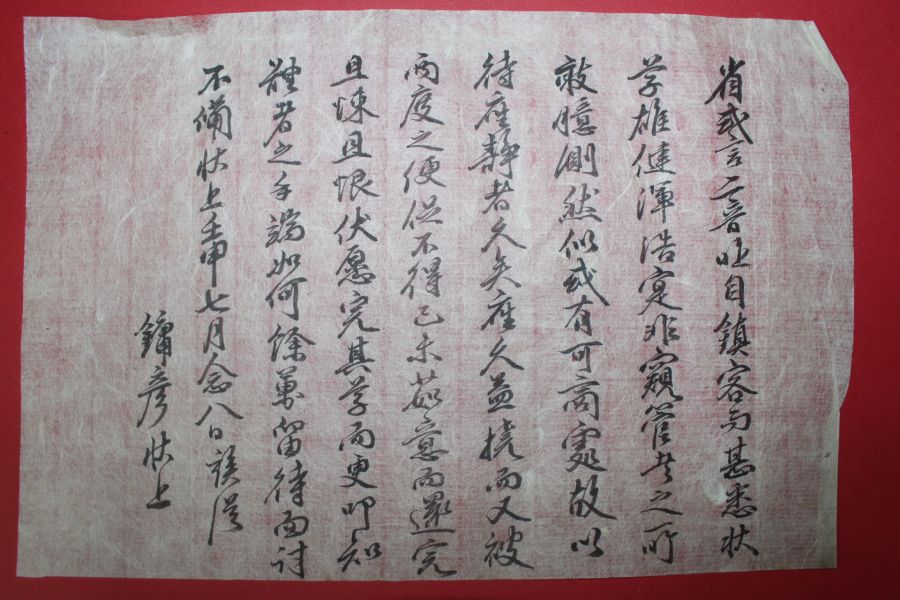 省或言二音昨自鎮客而甚悉状
学雄健渾浩寔非窺管者之所
敢臆測然似或有可商處故以
待座静者久矣座久益撓而又被
两度之便促不得已未茹意而還完
且悚且恨伏愿完其学而更叩知
軆者之手端如何餘萬留待面討
不備状上壬申七月念八日
鏞彦状上